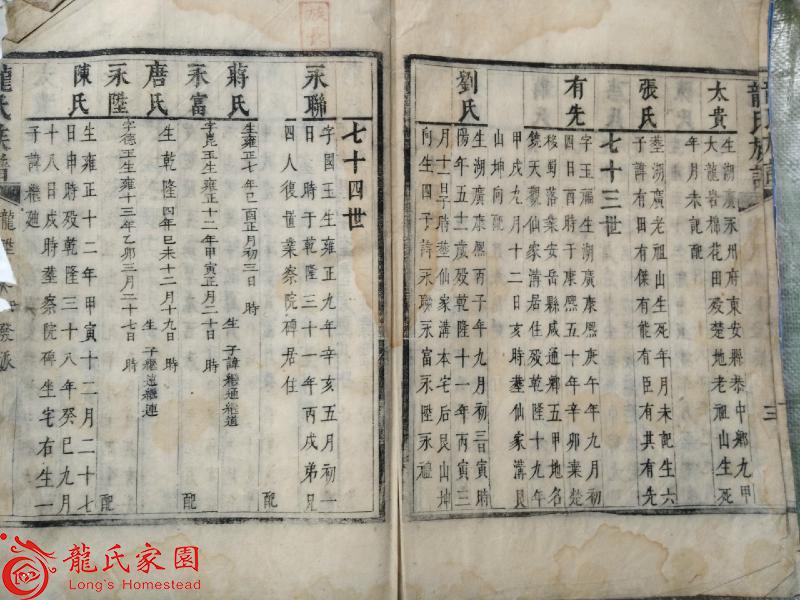 龍氏族譜
三
太貴
生湖廣永州府東安縣恭中鄉九甲
大龍岩棉花田歿楚地老祖山生死
年月未記
配
張氏
塟湖廣老祖山生死年月未記生六
子諱有田有保有能有臣有其有先
七十三世
有先
字玉瑞生湖廣康熙庚午年九月初
四日酉時于康熙五十年辛卯棄楚
移蜀落業安岳縣咸通鄉五甲地名
鐃天觀仙家溝居住歿乾隆十九年
甲戌九月十二日亥時塟仙家溝艮
山坤向配
劉氏
生湖廣康熙丙子年九月初三日寅時
陽年五十一歲歿乾隆十一年丙寅三
月十二日子時塟仙家溝本宅后艮山坤
向生四子諱永聯永富永陞永福
七十四世
永聯
字國玉生雍正九年辛亥五月初一
日 時于乾隆三十一年丙戌弟兄
四人復置業察院碑居住
配
蔣氏
生雍正七年己酉正月初三日 時 生 子諱繼通繼道
永富
字崑玉生雍正十二年甲寅正月二十日 時
配
唐氏
生乾隆四年己未十二月十九日 時 生 子繼通繼連
永陞
字德玉生雍正十三年乙卯三月二十七日 時
配
陳氏
生雍正十二年甲寅十二月二十七
日申時歿乾隆三十八年癸巳九月
十八日戌時塟察院碑生宅右生一
子諱繼廸
龍氏族譜
龍氏家園
Long's Homestead